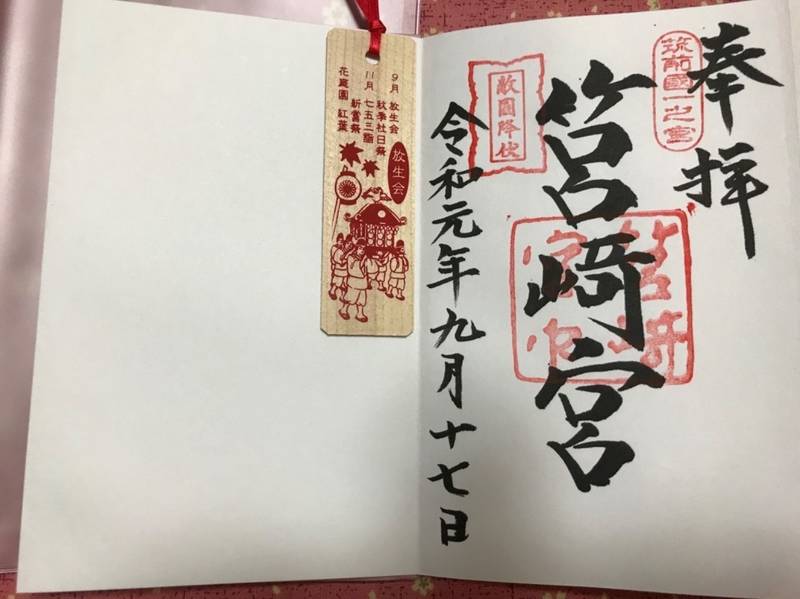 奉拝
筑前國一之宮
筥崎宮
筥崎
宮印
敵国降伏
令和元年九月十七日
9月 放生会
秋季社日祭
11月 七五三詣
新嘗祭
花庭園 紅葉
放生会